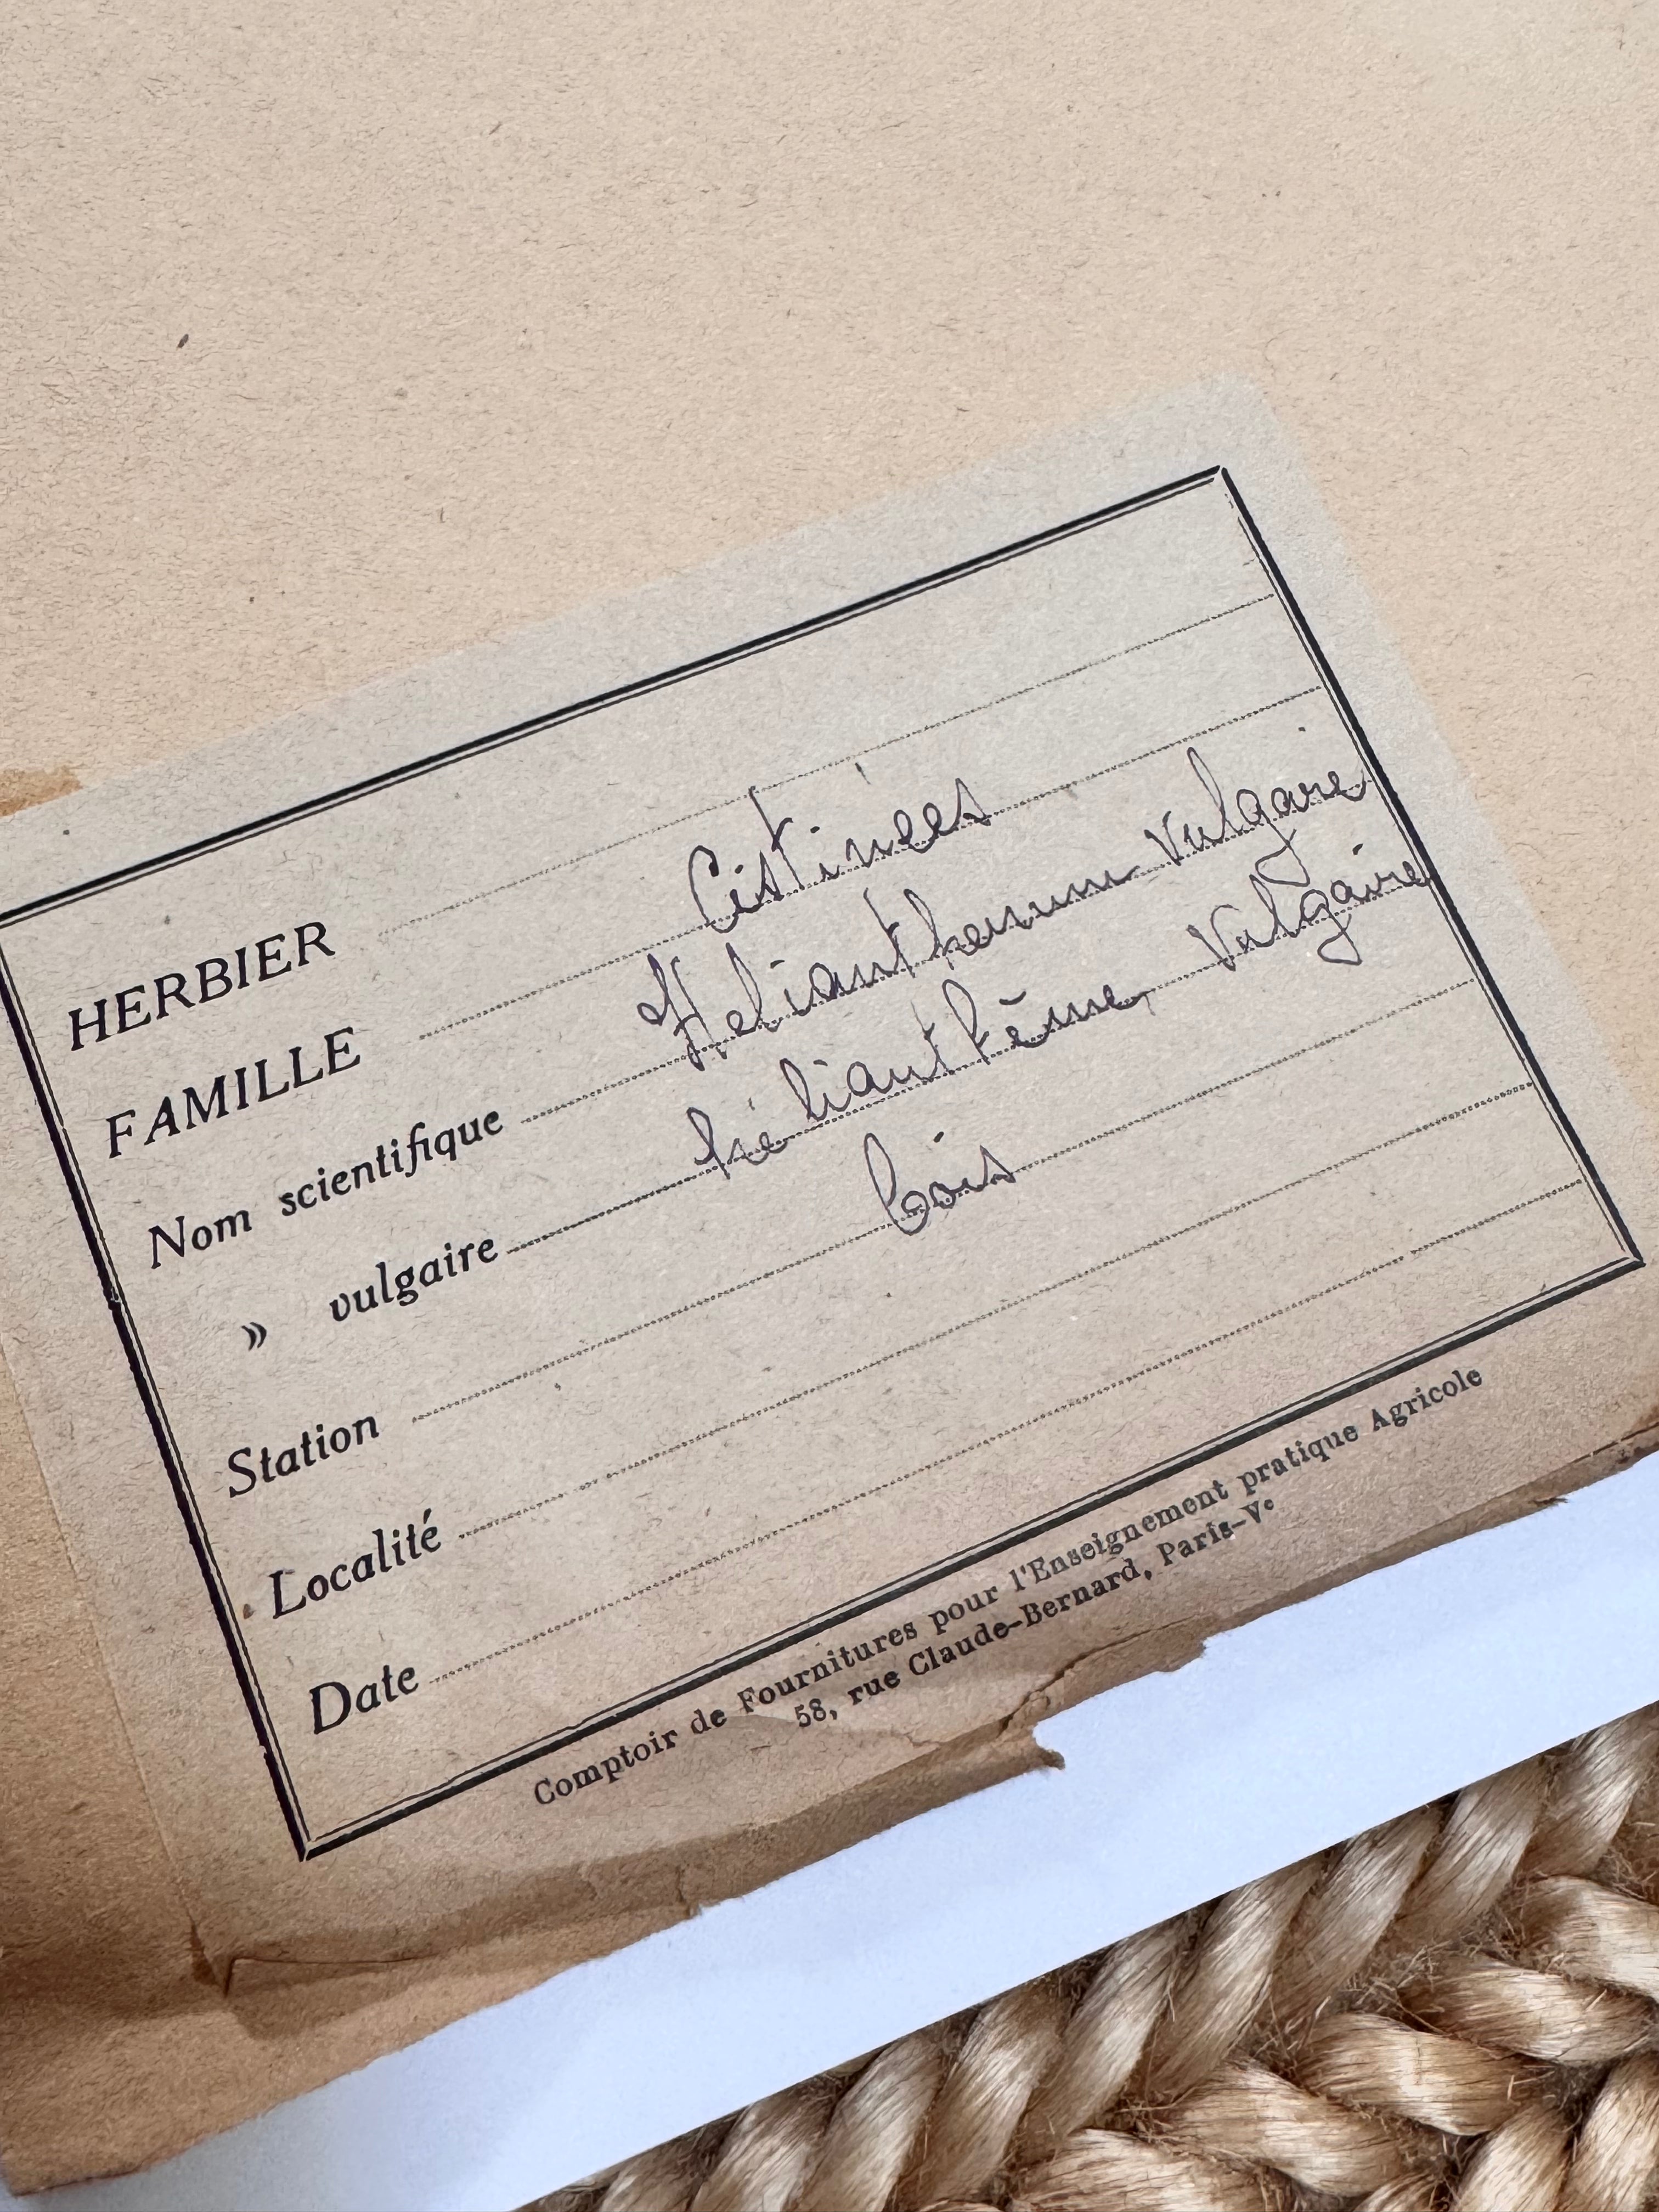 HERBIER
FAMILLE Cistinées
Nom scientifique Helianthemum vulgare
» vulgaire hélianthème vulgaire
Station bois
Localité
Date
Comptoir de Fournitures pour l'Enseignement pratique Agricole
58, rue Claude-Bernard, Paris-Ve